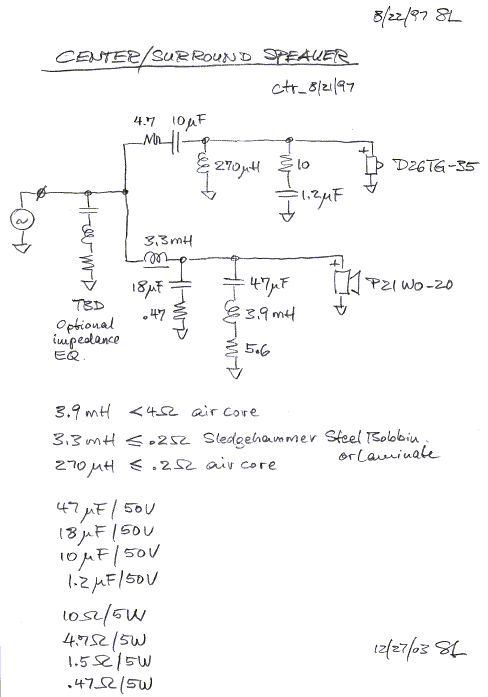 8/22/97 SL
CENTER/SURROUND SPEAKER
ctr_8/21/97
4.7 10µF
270µH
10
1.2µF
+
D26TG-35
~
3.3mH
18µF
.47
47µF
3.9mH
5.6
+
P21WO-20
TBD
Optional
impedance
EQ.
3.9mH <4Ω air core
3.3mH ≤ .2Ω Sledgehammer Steel Bobbin
or Laminate
270µH ≤ .2Ω air core
47µF/50V
18µF/50V
10µF/50V
1.2µF/50V
10Ω/5W
4.7Ω/5W
1.5Ω/5W
.47Ω/5W
12/27/03 SL